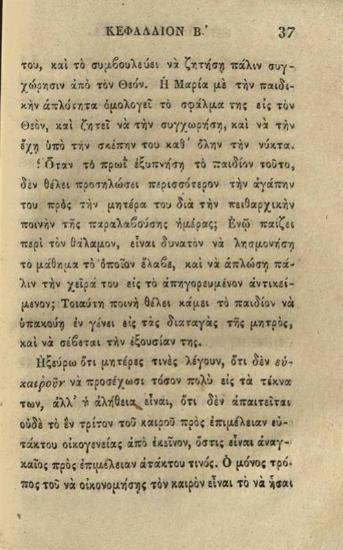 ΚΕΦΑΛΑΙΟΝ Β.΄ 37
του, καὶ τὸ συμβουλεύει νὰ ζητήσῃ πάλιν συγ-
χώρησιν ἀπὸ τὸν Θεόν. Ἡ Μαρία μὲ τὴν παιδι-
κὴν ἁπλότητα ὁμολογεῖ τὸ σφάλμα της εἰς τὸν
Θεὸν, καὶ ζητεῖ νὰ τὴν συγχωρήσῃ, καὶ νὰ τὴν
ἔχῃ ὑπὸ τὴν σκέπην του καθ' ὅλην τὴν νύκτα.
Ὅταν τὸ πρωῒ ἐξυπνήσῃ τὸ παιδίον τοῦτο,
δὲν θέλει προσηλώσει περισσότερον τὴν ἀγάπην
του πρὸς τὴν μητέρα του διὰ τὴν πειθαρχικὴν
ποινὴν τῆς παραλαβούσης ἡμέρας; Ἐνῷ παίζει
περὶ τὸν θάλαμον, εἶναι δυνατὸν νὰ λησμονήσῃ
τὸ μάθημα τὸ ὁποῖον ἔλαβε, καὶ νὰ ἁπλώσῃ πά-
λιν τὴν χεῖρά του εἰς τὸ ἀπηγορευμένον ἀντικεί-
μενον; Τοιαύτη ποινὴ θέλει κάμει τὸ παιδίον νὰ
ὑπακούῃ ἐν γένει εἰς τὰς διαταγὰς τῆς μητρὸς,
καὶ νὰ σέβεται τὴν ἐξουσίαν της.
Ἠξεύρω ὅτι μητέρες τινὲς λέγουν, ὅτι δὲν εὐ-
καιροῦν νὰ προσέχωσι τόσον πολὺ εἰς τὰ τέκνα
των, ἀλλ' ἡ ἀλήθεια εἶναι, ὅτι δὲν ἀπαιτεῖται
οὐδὲ τὸ ἓν τρίτον τοῦ καιροῦ πρὸς ἐπιμέλειαν εὐ-
τάκτου οἰκογενείας ἀπὸ ἐκεῖνον, ὅστις εἶναι ἀναγ-
καῖος πρὸς ἐπιμέλειαν ἀτάκτου τινός. Ὁ μόνος τρό-
πος τοῦ νὰ οἰκονομήσῃς τὸν καιρὸν εἶναι τὸ νὰ ἦσαι